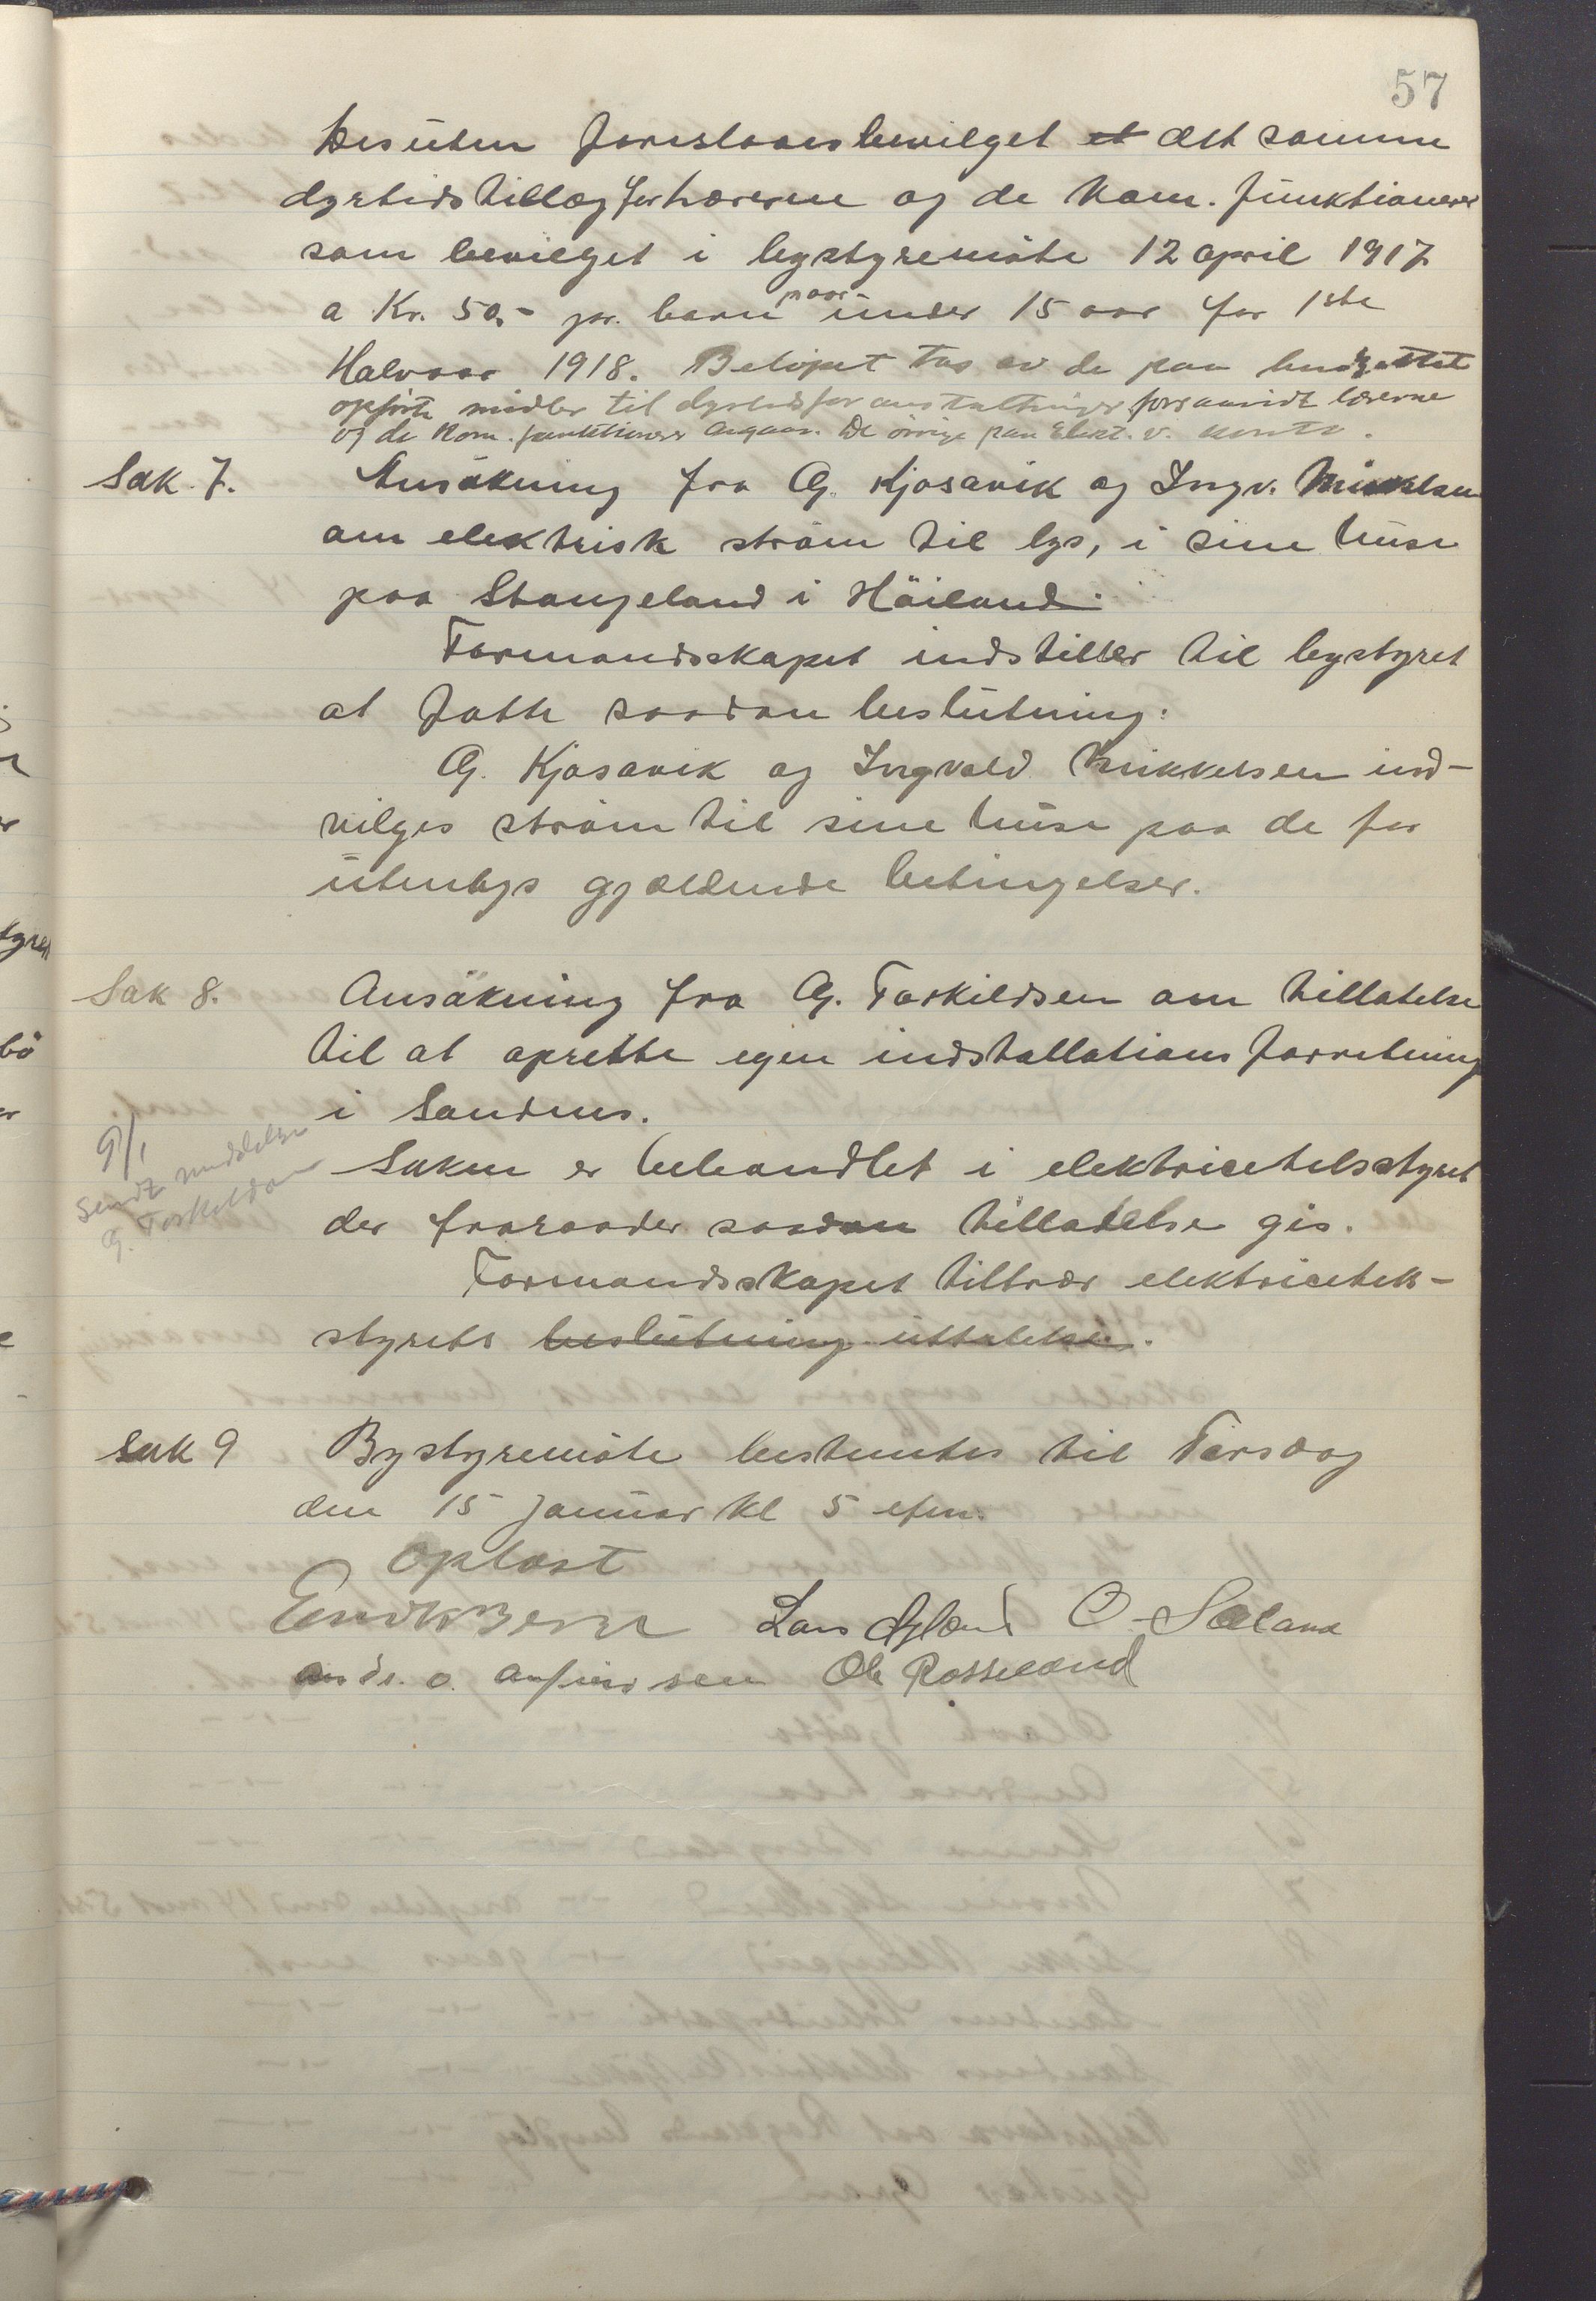 57
Desuten foreslaaes bevilget et det samme
dyrtidstillæg for lærerne og de kom. funktionærer
som bevilget i bystyremöte 12 april 1917
a Kr. 50,- pr. barn under 15 aar for 1ste
Halvaar 1918. Belöpet tas av de paa budgettet
opförte midler til dyrtidsforanstaltninger forsaavidt lærerne
og de kom. funktionærer angaar. De övrige paa Elekt. v. konto.
Sak 7. Ansökning fra G. Kjosavik og Ingv. Mikkelsen
om elektrisk ström til lys, i sine huse
paa Stangeland i Höiland.
Formandsskapet indstiller til bystyret
at fatte saadan beslutning:
G. Kjosavik og Ingvald Mikkelsen ind-
vilges ström til sine huse paa de for
utenbys gjældende betingelser.
Sak 8. Ansökning fra G. Torkildsen om tillatelse
til at oprette egen indstallations forretning
i Sandnes.
9/1
sendt meddelelse
G. Torkildsen
Saken er behandlet i elektricetetsstyret
der fraraader saadan tilladelse gis.
Formandsskapet tiltrær elektricetets-
styrets beslutning uttalelse.
Sak 9 Bystyremöte bestemtes til Tirsdag
den 15 januar kl 5 efm.
Oplæst
Lars Ösland O. Sæland
Andr. O. Anfindsen Ole Rosseland